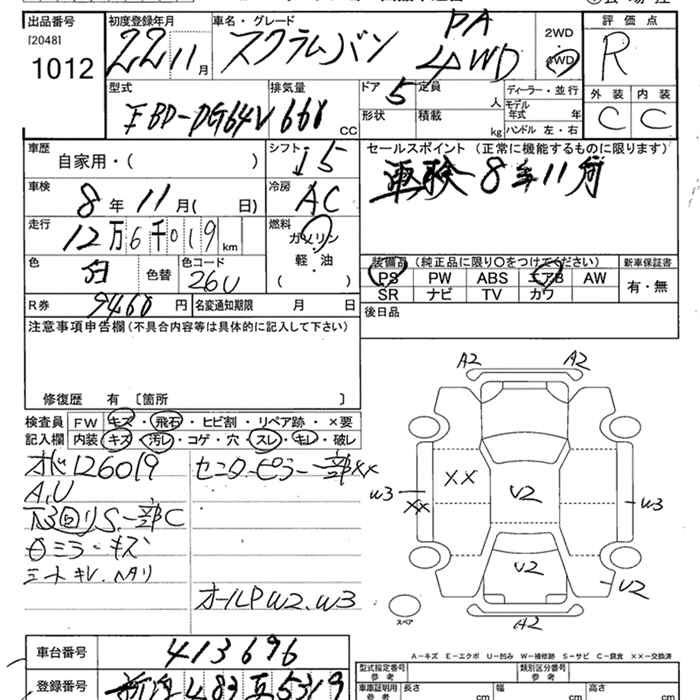 出品番号 [2048] 1012
初度登録年月 22 11 月
車名・グレード スクラムバン PA 4WD
2WD 4WD
評価点 R
型式 EBD-DG64V
排気量 660 CC
ドア 5
形状
定員 人
積載 kg
ディーラー・並行
モデル年式 年
ハンドル 左・右
外装 C
内装 C
車歴 自家用・( )
シフト ↓5
セールスポイント (正常に機能するものに限ります)
車検 8年11月
車検 8年 11月( 日)
冷房 AC
走行 12万6千019 km
燃料 ガソリン 軽・油 ( )
色 白 色替
色コード 26U
装備品 (純正品に限り〇をつけてください)
PS PW ABS エアB AW
SR ナビ TV カワ
新車保証書 有・無
R券 9460 円
名変通知期限 月 日
後日品
注意事項申告欄 (不具合内容等は具体的に記入して下さい)
修復歴 有 〔箇所 〕
検査員記入欄
FW キズ・飛石・ヒビ割・リペア跡・×要
内装 キズ・汚レ・コゲ・穴・スレ・キレ・破レ
オド126019
A.U
下回りS.一部C
ミラーキズ
シートキレ.ヘタリ
センターピラー一部××
オールP W2.W3
A2 A2
W3 ×× ×× U2 W3
U2 U2
A2
スペア
A-キズ E-エクボ U-凹み W-補修跡 S-サビ C-腐食 ××-交換済
車台番号 413696
登録番号 483 5319
型式指定番号 参考
類別区分番号 参考
車庫証明用 参考 長さ cm 幅 cm 高さ cm